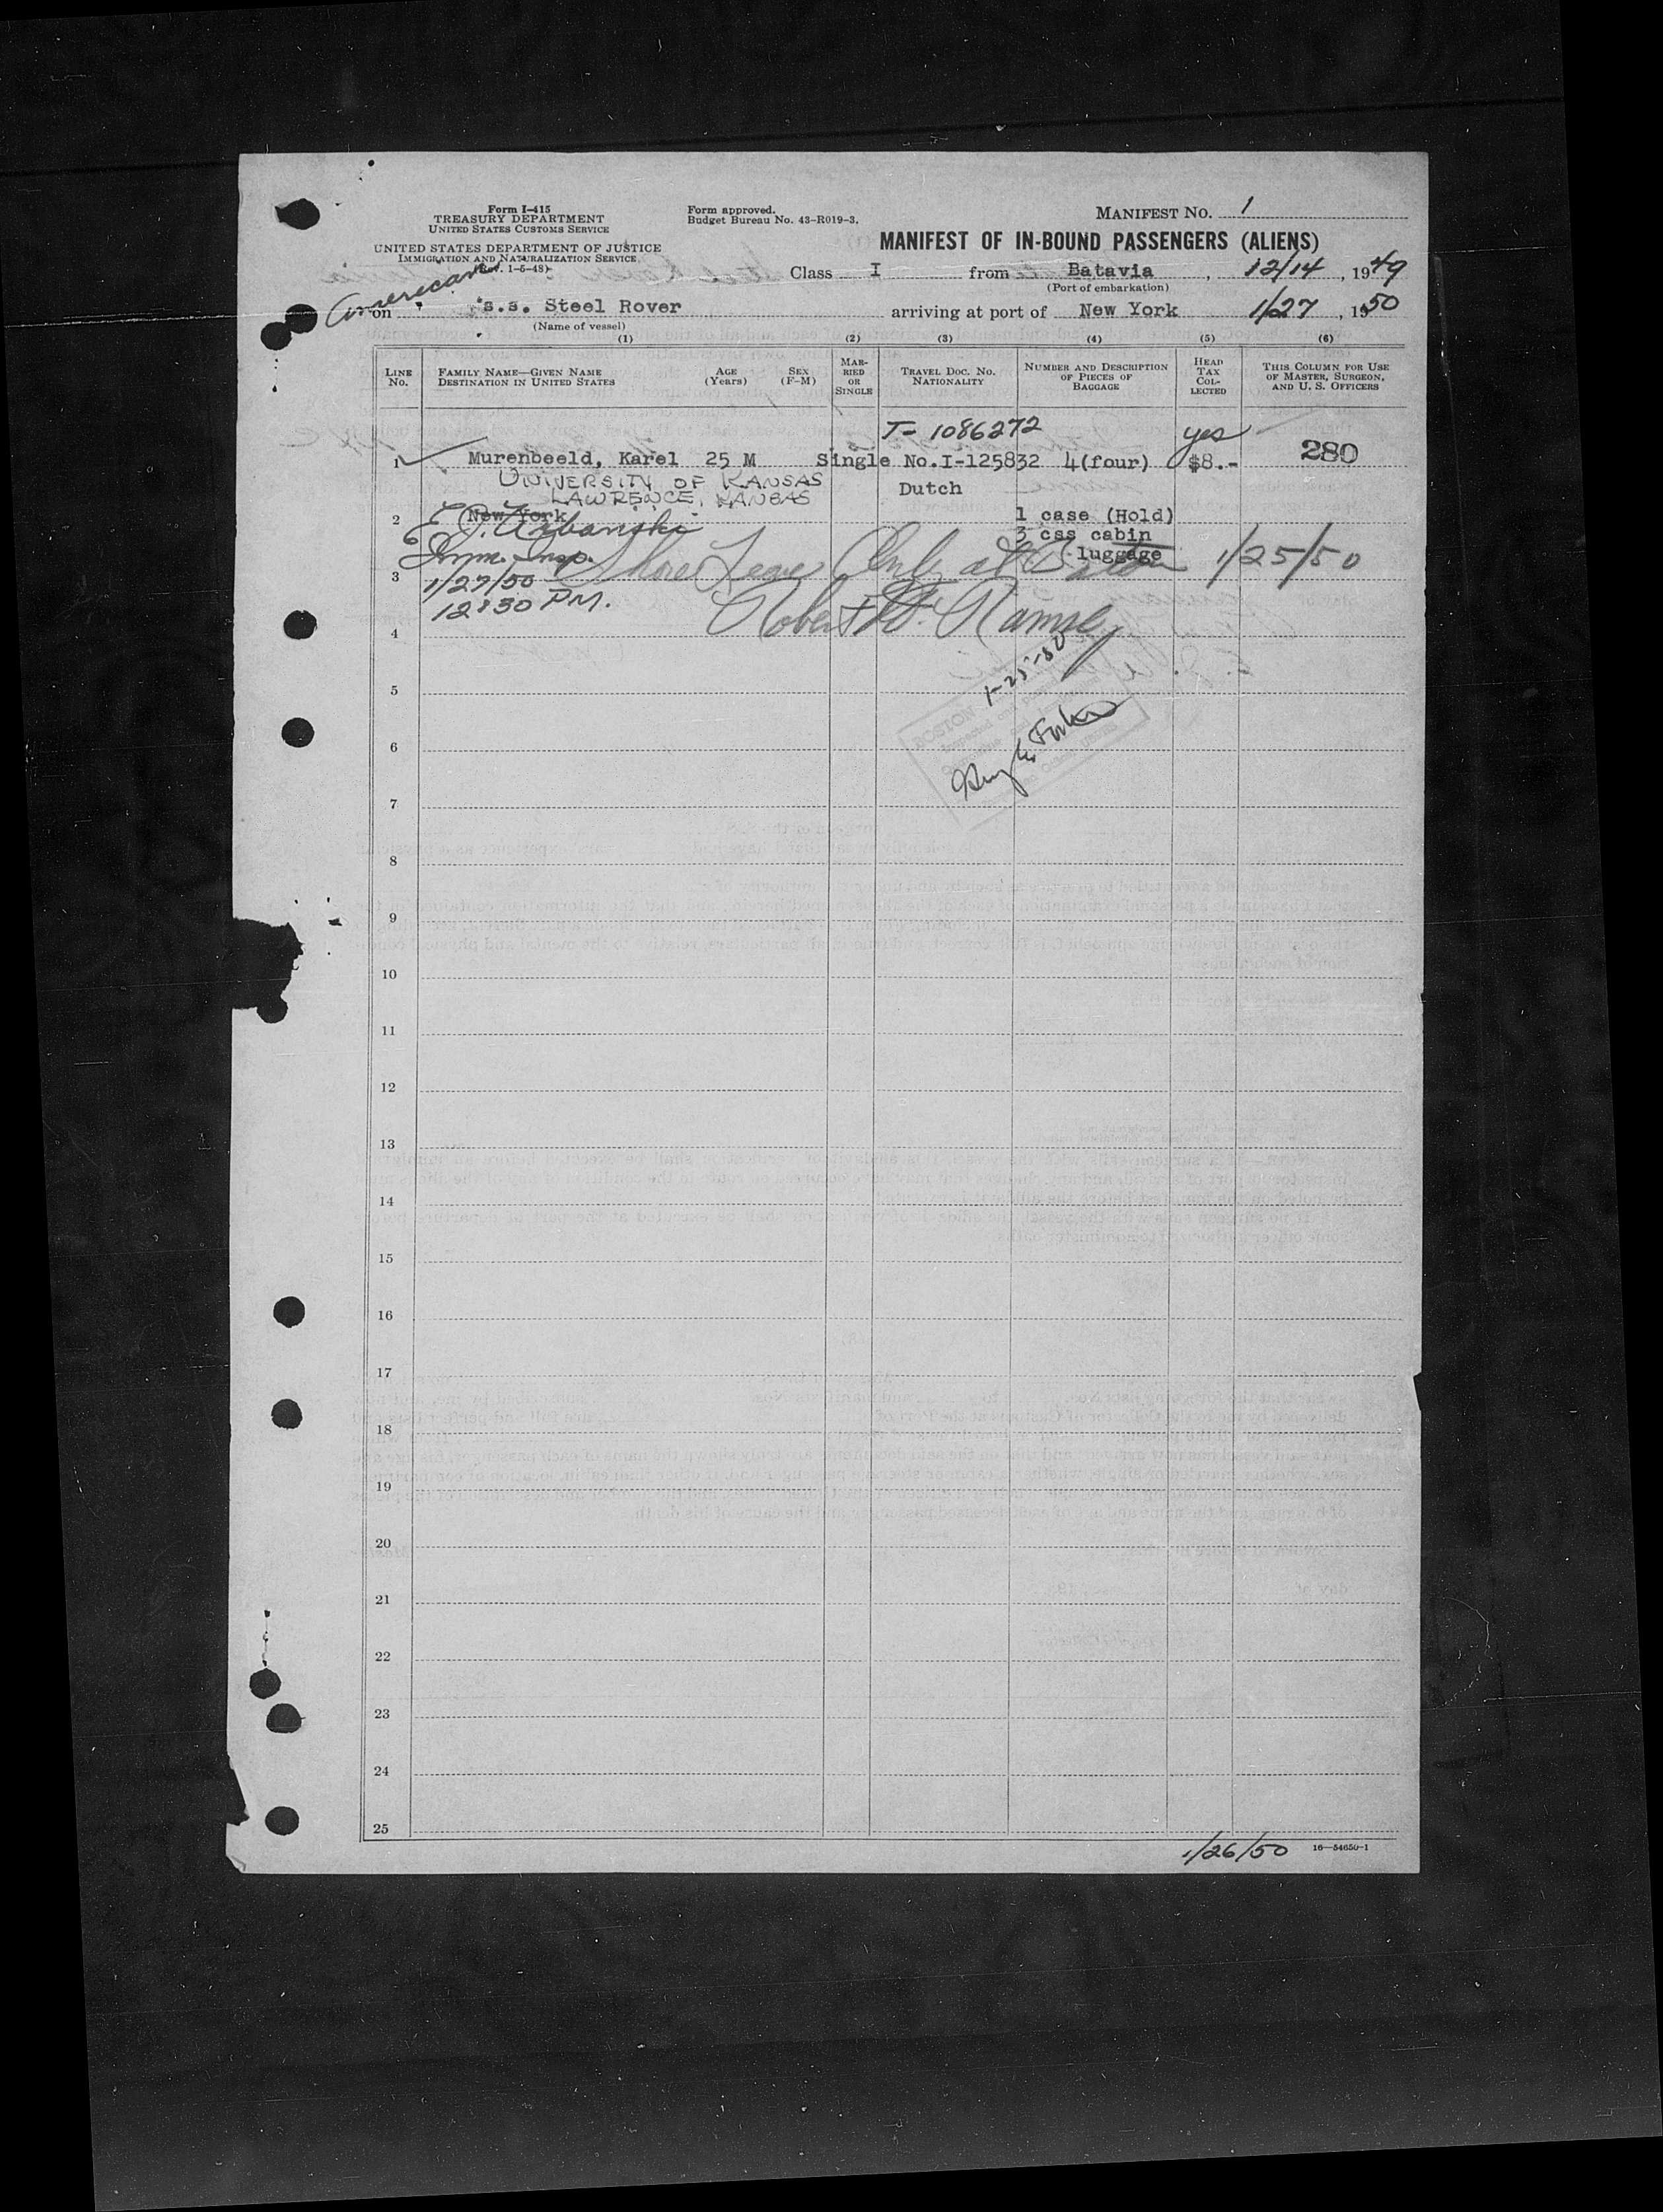 Form I-415
TREASURY DEPARTMENT
UNITED STATES CUSTOMS SERVICE
UNITED STATES DEPARTMENT OF JUSTICE
IMMIGRATION AND NATURALIZATION SERVICE
(Rev. 1-5-48)
Form approved.
Budget Bureau No. 43-R019-3.
MANIFEST No. 1
MANIFEST OF IN-BOUND PASSENGERS (ALIENS)
Class I from Batavia, 12/14, 1949
(Port of embarkation)
American
on s.s. Steel Rover arriving at port of New York 1/27, 1950
(Name of vessel)
(1) (2) (3) (4) (5) (6)
LINE No.
FAMILY NAME—GIVEN NAME
DESTINATION IN UNITED STATES
AGE (Years)
SEX (F-M)
MARRIED OR SINGLE
TRAVEL DOC. NO.
NATIONALITY
NUMBER AND DESCRIPTION OF PIECES OF BAGGAGE
HEAD TAX COLLECTED
THIS COLUMN FOR USE OF MASTER, SURGEON, AND U. S. OFFICERS
T- 1086272 yes
1 Murenbeeld, Karel 25 M Single No.I-125832 4(four) $8.- 280
UNIVERSITY OF KANSAS Dutch
LAWRENCE, KANSAS
2 New York 1 case (Hold)
E. J. Urbanski 3 css cabin
luggage
Imm. Insp. Shore Leave Only at Boston 1/25/50
3
1/27/50
12:30 PM.
Robert W.
4
1-25-50
5
BOSTON
6
7
8
9
10
11
12
13
14
15
16
17
18
19
20
21
22
23
24
25
1/26/50 16—54650-1